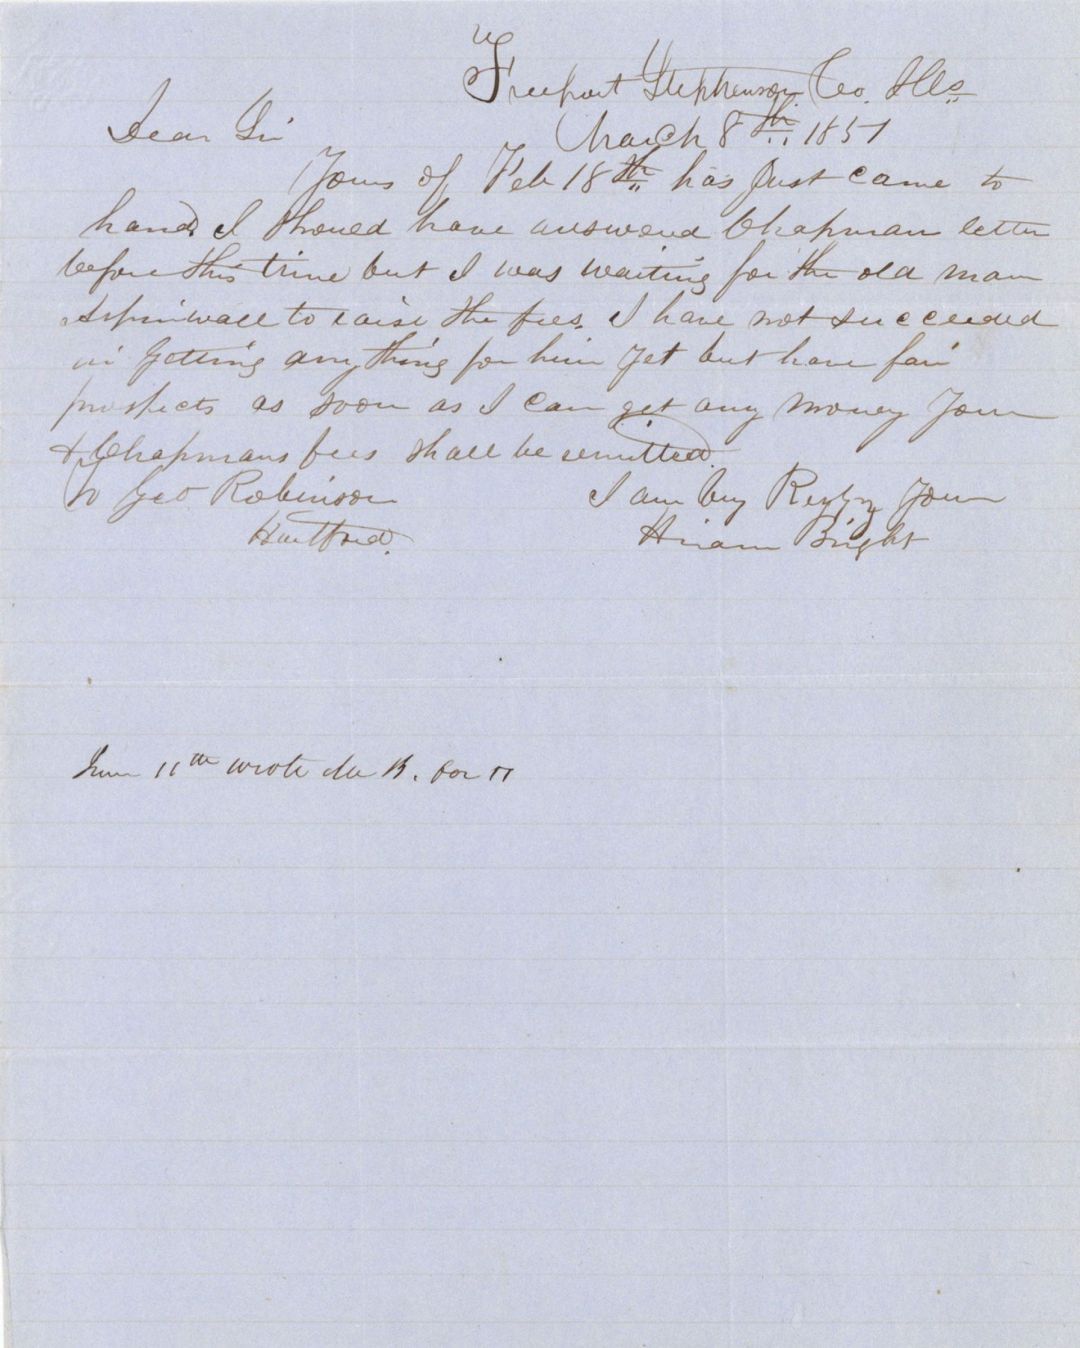 Freeport Stephenson Co. Ills
March 8th 1857
Dear Sir
Yours of Feb 18th has Just came to
hand, I should have answered Chapman letter
before this time but I was waiting for the old man
Aspinwall to raise the fees, I have not succeeded
in getting any thing for him yet but have fair
prospects as soon as I can get any money Your
& Chapmans fees shall be remitted.
To Geo Robinson
Hartford.
I am very Respty Your
Hiram Bright
11th wrote Mr B. for